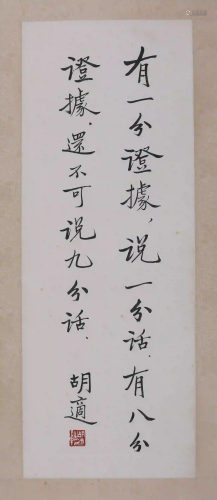 有一分證據，说一分话．有八分
證據．還不可说九分话．
胡適